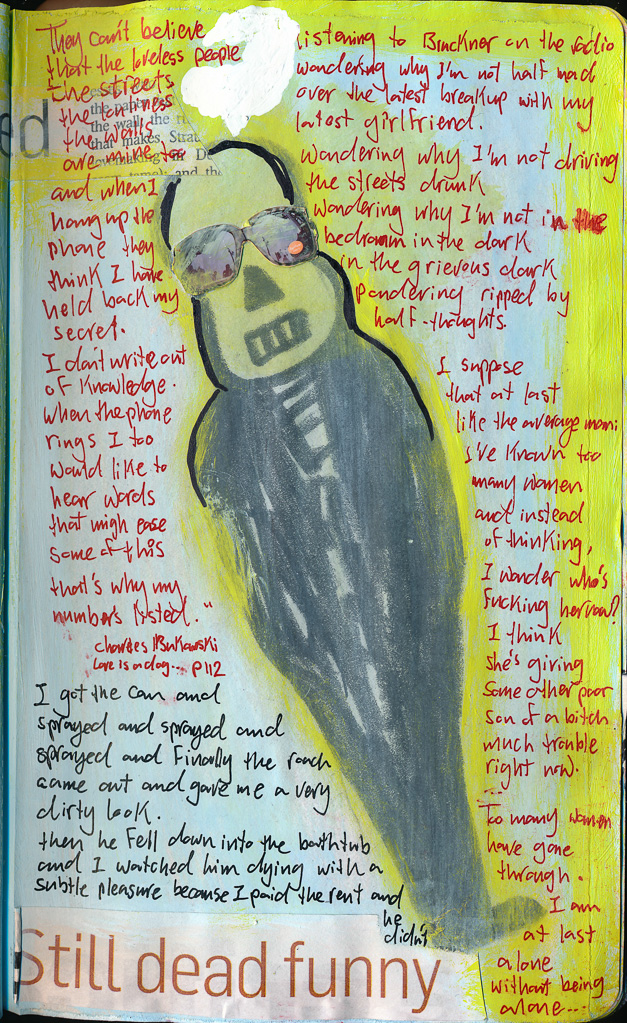 They can't believe
that the loveless people
the streets
the loneliness
the walls
are mine too
and when I
hang up the
phone they
think I have
held back my
secret.
I don't write out
of knowledge.
when the phone
rings I too
would like to
hear words
that migh ease
some of this
that's why my
number's listed."
Charles Bukowski
Love is a dog... p112
I got the can and
sprayed and sprayed and
sprayed and finally the roach
came out and gave me a very
dirty look.
then he fell down into the bathtub
and I watched him dying with a
subtle pleasure because I paid the rent and
he
didn't
listening to Bruckner on the radio
wondering why I'm not half mad
over the latest breakup with my
latest girlfriend.
Wondering why I'm not driving
the streets drunk
Wondering why I'm not in the
bedroom in the dark
in the grievous dark
pondering ripped by
half-thoughts.
I suppose
that at last
like the average man:
I've known too
many women
and instead
of thinking,
I wonder who's
fucking her now?
I think
she's giving
some other poor
son of a bitch
much trouble
right now.
...
Too many women
have gone
through.
I am
at last
alone
without being
alone...
ed
the wall, the
that makes, Strat
Still dead funny